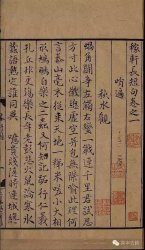 稼軒長短句卷之一
哨遍
秋水觀
蝸角鬪爭左觸右蠻一戰連千里君試思
方寸此心微總虛空并包無際喻此理何
言泰山毫末從來天地一稊米嗟小大相
形鳩鵬自樂之二蟲又何知記跖行仁義
孔丘非更殤樂長年老彭悲火鼠論寒冰
蠶語熱定誰同異　噫貴賤隨時連城